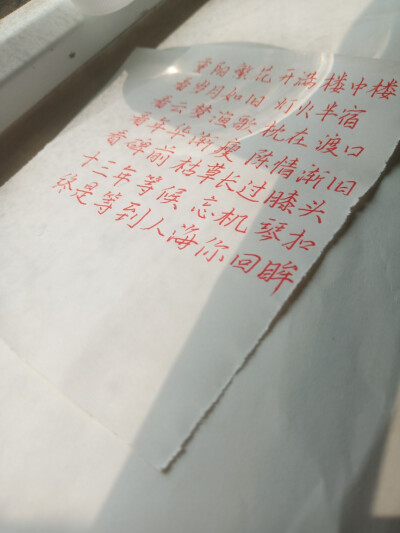 重阳繁花 开满楼中楼
看岁月如旧 灯火半宿
看云梦渔歌 枕在渡口
看年华渐瘦 陈情渐旧
看碑前 枯草长过膝头
十三年等候 忘机琴扣
终是等到人海你回眸